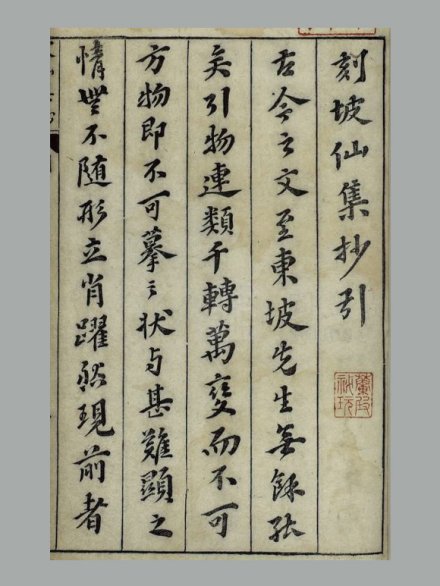 刻坡仙集抄引
古今之文至東坡先生無餘能
矣引物連類千轉萬變而不可
方物即不可摹之狀与甚難顯之
情無不隨形立肖躍然現前者